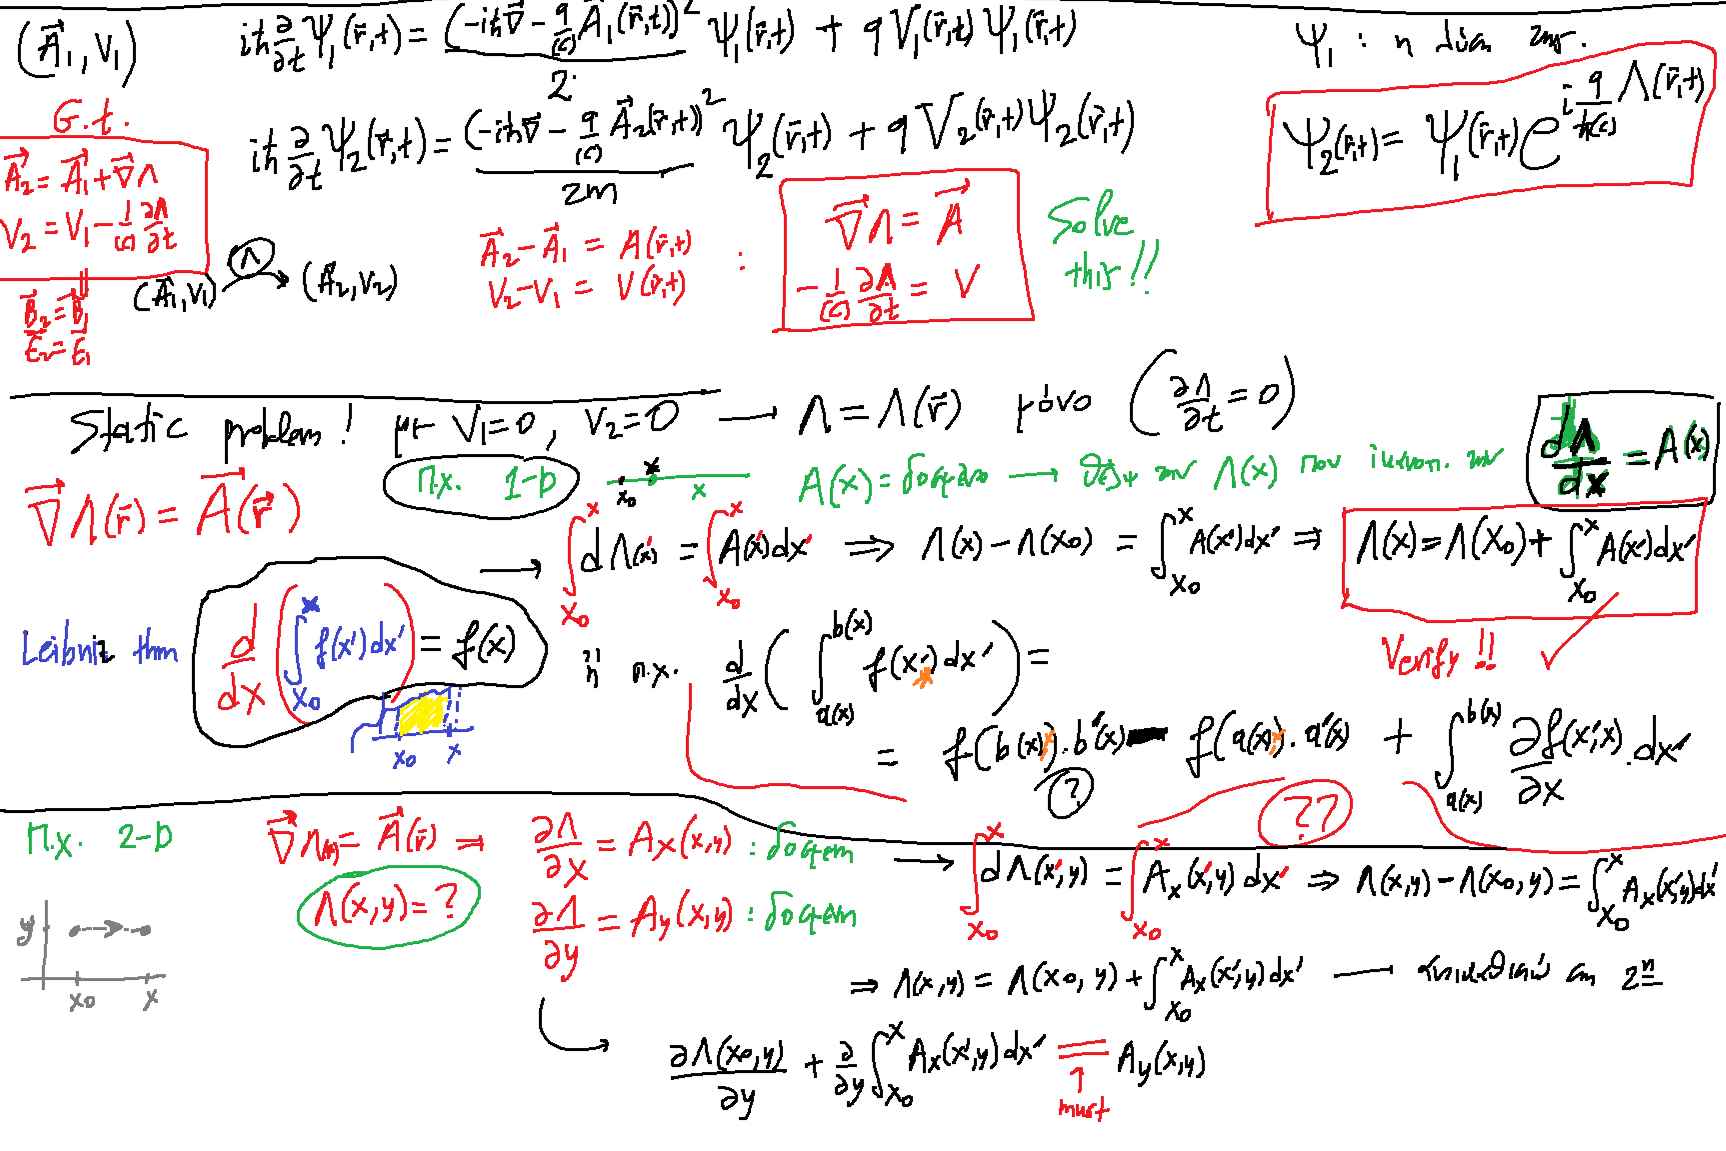 (A⃗₁, V₁) iħ ∂/∂t Ψ₁(r̄,t) = (-iħ∇⃗ - q/(c) A⃗₁(r̄,t))² / 2· Ψ₁(r̄,t) + q V₁(r̄,t) Ψ₁(r̄,t)
Ψ₁ : η
G.t.
iħ ∂/∂t Ψ₂(r̄,t) = (-iħ∇⃗ - q/(c) A⃗₂(r̄,t))² / 2m Ψ₂(r̄,t) + q V₂(r̄,t) Ψ₂(r̄,t)
Ψ₂(r̄,t) = Ψ₁(r̄,t) e^{i q/ħ(c) Λ(r̄,t)}
A⃗₂ = A⃗₁ + ∇⃗Λ
V₂ = V₁ - 1/(c) ∂Λ/∂t
B⃗₂ = B⃗₁
E⃗₂ = E⃗₁
(A⃗₁, V₁) Λ → (A⃗₂, V₂)
A⃗₂ - A⃗₁ = A(r̄,t)
V₂ - V₁ = V(r̄,t) :
∇⃗Λ = A⃗
-1/(c) ∂Λ/∂t = V
Solve
this!!
Static problem! με V₁=0, V₂=0 → Λ = Λ(r̄) μόνο (∂Λ/∂t = 0)
∇⃗Λ(r̄) = A⃗(r⃗)
Π.χ. 1-D
x₀ x x
A(x) = δοσμένο → θέλω την Λ(x) που ικανοπ. την
dΛ/dx = A(x)
→ ∫_{x₀}^{x} dΛ(x') = ∫_{x₀}^{x} A(x')dx' ⇒ Λ(x) - Λ(x₀) = ∫_{x₀}^{x} A(x')dx' ⇒ Λ(x) = Λ(x₀) + ∫_{x₀}^{x} A(x')dx'
Verify!! ✓
Leibniz thm d/dx (∫_{x₀}^{x} f(x')dx') = f(x)
x₀ x
ή π.χ. d/dx (∫_{a(x)}^{b(x)} f(x')dx') =
= f(b(x))·b'(x) - f(a(x))·a'(x) + ∫_{a(x)}^{b(x)} ∂f(x',x)/∂x ·dx'
?
??
Π.χ. 2-D
∇⃗Λ(r̄) = A⃗(r̄) ⇒ ∂Λ/∂x = Ax(x,y) : δοσμεν
Λ(x,y) = ?
∂Λ/∂y = Ay(x,y) : δοσμεν
y
x₀ x
→ ∫_{x₀}^{x} dΛ(x',y) = ∫_{x₀}^{x} Ax(x',y)dx' ⇒ Λ(x,y) - Λ(x₀,y) = ∫_{x₀}^{x} Ax(x',y)dx'
⇒ Λ(x,y) = Λ(x₀,y) + ∫_{x₀}^{x} Ax(x',y)dx' — στη 2η
∂Λ(x₀,y)/∂y + ∂/∂y ∫_{x₀}^{x} Ax(x',y)dx' = Ay(x,y)
↑
must